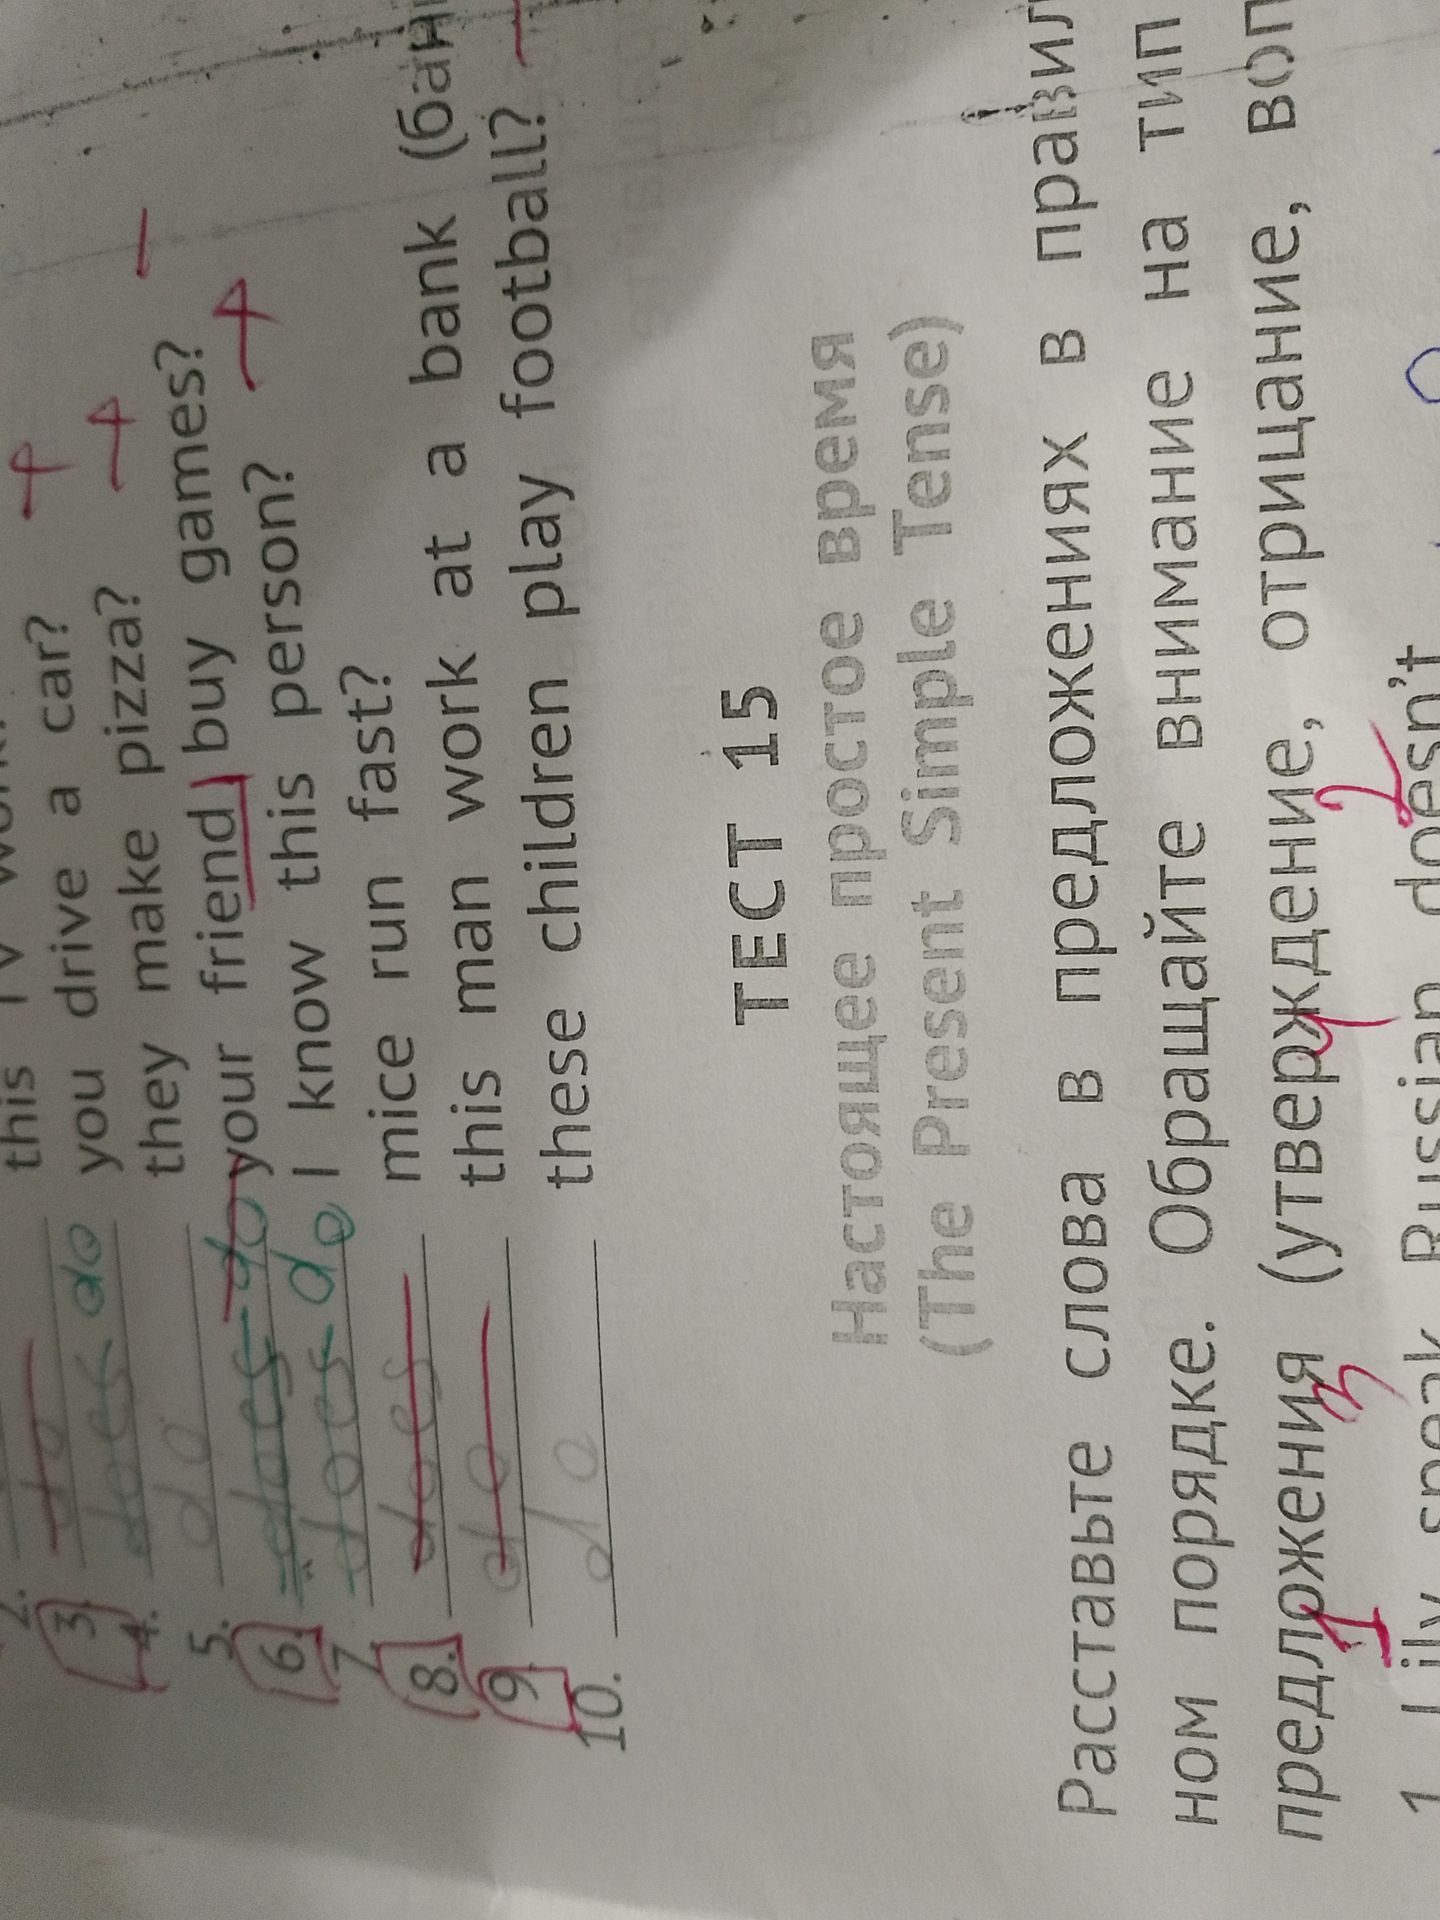 2. this TV
3. do you drive a car?
4. does do they make pizza?
5. do your friend buy games?
6. does do I know this person?
7. does do mice run fast?
8. does this man work at a bank (бан
9. do these children play football?
10. do
ТЕСТ 15
Настоящее простое время
(The Present Simple Tense)
Расставьте слова в предложениях в правил
ном порядке. Обращайте внимание на тип
предложения (утверждение, отрицание, воп
1 3 4 2
1 Lily speak Russian doesn't